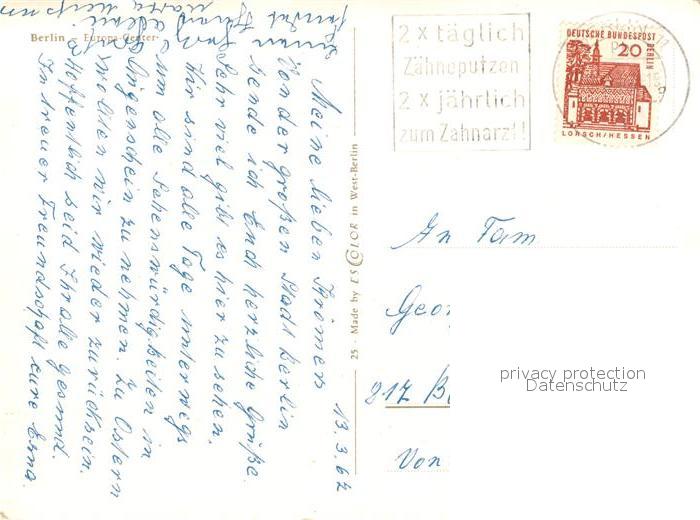 Berlin - Europa-Center-
13.3.67
Meine lieben
Von der großen Stadt Berlin
sende ich Euch herzliche Grüße.
Sehr viel gibt es hier zu sehen.
Wir sind alle Tage unterwegs
um alle Sehenswürdigkeiten in
Augenschein zu nehmen. Zu Ostern
wollen wir wieder zurück sein.
Hoffentlich seid Ihr alle gesund.
In treuer Freundschaft eure Erna.
25 - Made by ESCOLOR in West-Berlin
2 x täglich
Zähneputzen
2 x jährlich
zum Zahnarzt!
DEUTSCHE BUNDESPOST
BERLIN
20
LORSCH/HESSEN
An Fam
Geor
817 B
Von
privacy protection
Datenschutz